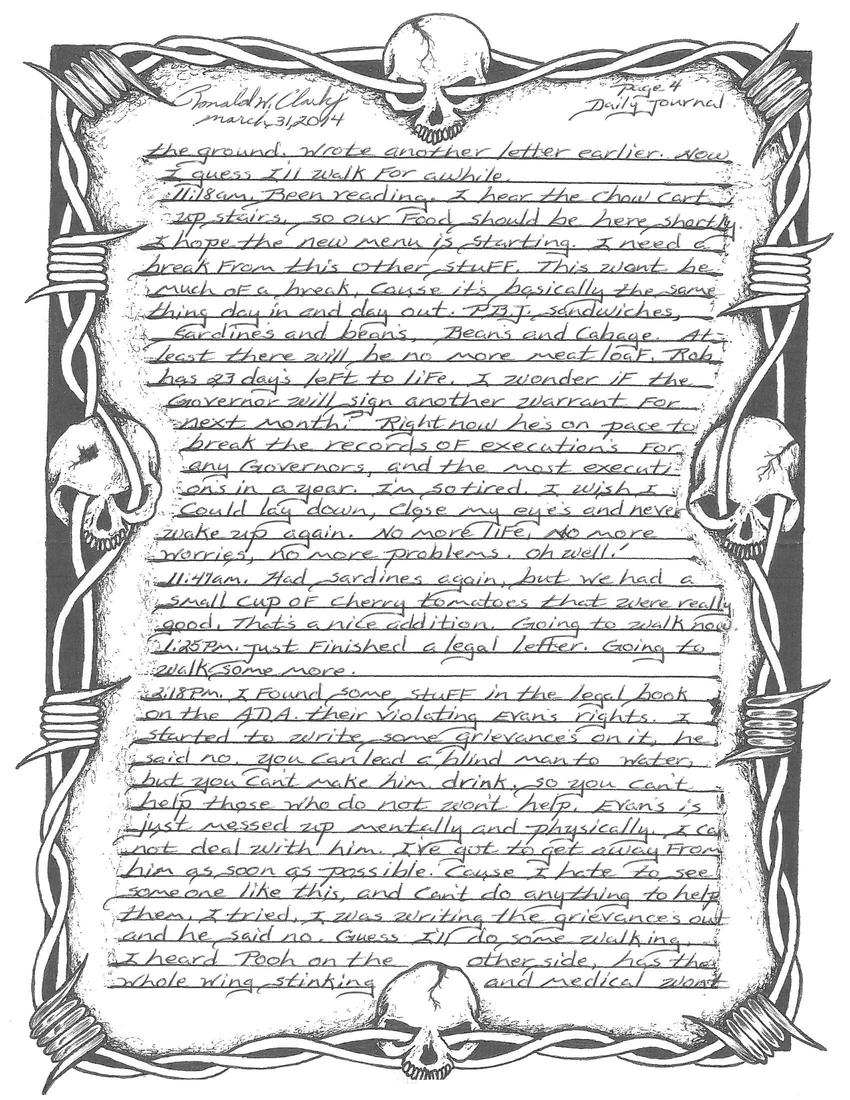 Ronald W. Clark Jr
March 31, 2014
Page 4
Daily Journal
the ground. Wrote another letter earlier. Now
I guess I'll walk for awhile.
11:18am. Been reading. I hear the chow cart
up stairs, so our food should be here shortly
I hope the new menu is starting. I need a
break from this other stuff. This wont be
much of a break, cause it's basically the same
thing day in and day out. P.B.J. sandwiches,
sardines and beans, Beans and Cabage. At
least there will be no more meat loaf. Rob
has 23 day's left to life. I wonder if the
Governor will sign another warrant for
next month? Right now he's on pace to
break the records of execution's for
any Governors, and the most executi
on's in a year. I'm so tired. I wish I
could lay down, close my eye's and never
wake up again. No more life, No more
worries, no more problems. oh well!
11:47am. Had sardines again, but we had a
small cup of cherry tomatoes that were really
good. That's a nice addition. Going to walk now
1:25pm. just finished a legal letter. Going to
walk some more.
2:18pm. I found some stuff in the legal book
on the ADA. their violating Evan's rights. I
started to write some grievance's on it, he
said no. you can lead a blind man to water,
but you can't make him drink. so you can't
help those who do not wont help. Evan's is
just messed up mentally and physically. I ca
not deal with him. I've got to get away from
him as soon as possible. Cause I hate to see
someone like this, and can't do anything to help
them. I tried. I was writing the grievance's out
and he said no. Guess I'll do some walking.
I heard Pooh on the other side, has the
whole wing stinking and medical wont